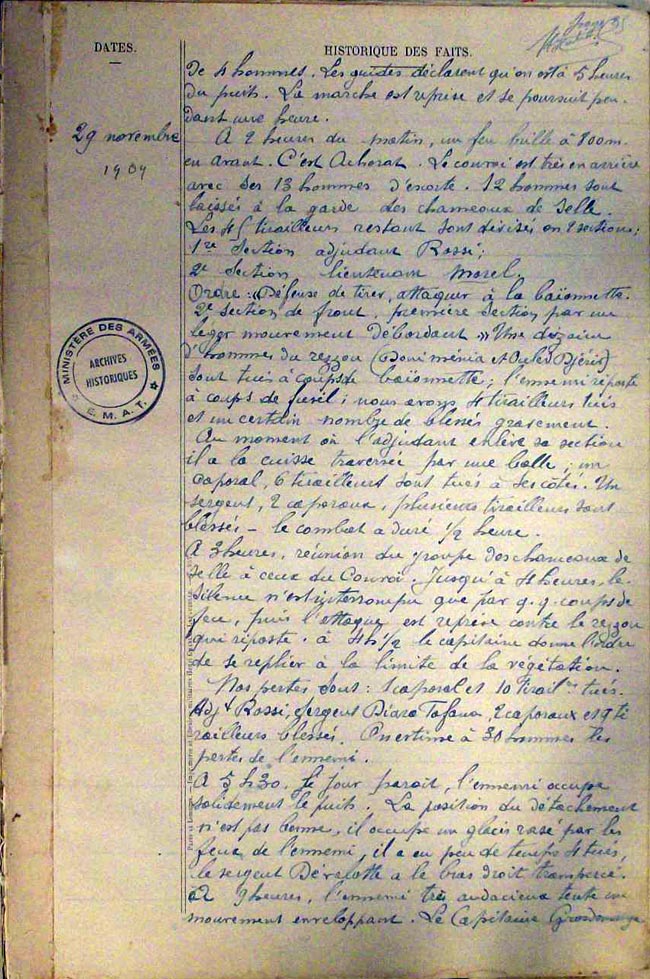 DATES.
HISTORIQUE DES FAITS.
de 4 hommes. Les guides déclarent qu'on est à 5 heures
du puits. La marche est reprise et se poursuit pen-
dant une heure.
29 novembre
1909
A 2 heures du matin, un feu brille à 800m.
en avant. C'est Achorat. Le convoi est très en arrière
avec ses 13 hommes d'escorte. 12 hommes sont
laissés à la garde des chameaux de selle.
Les tirailleurs restant sont divisés en 2 sections;
1re Section adjudant Rossi;
2e Section lieutenant Morel.
Ordre: "Défense de tirer, attaquer à la baïonnette.
2e section de front, première section par un
léger mouvement débordant" Une dizaine
d'hommes du rezzou (
sont tués à coups de baïonnette; l'ennemi riposte
à coups de fusil; nous avons 4 tirailleurs tués
et un certain nombre de blessés gravement.
Au moment où l'adjudant enlève sa section
il a la cuisse traversée par une balle; un
caporal, 6 tirailleurs sont tués à ses côtés. Un
sergent, 2 caporaux, plusieurs tirailleurs sont
blessés - le combat a duré 1/2 heure.
A 3 heures, réunion du groupe des chameaux de
selle à ceux du Convoi. Jusqu'à 4 heures, le
silence n'est interrompu que par q.q. coups de
feu, puis l'attaque est reprise contre le rezzou
qui riposte. à 4h 1/2 le capitaine donne l'ordre
de se replier à la limite de la végétation.
Nos pertes sont: 1 caporal et 10 tirail. tués.
Adjt Rossi, sergent Diara Tafana, 2 caporaux et 9 ti
railleurs blessés. On estime à 30 hommes les
pertes de l'ennemi.
A 5h30. le jour paraît, l'ennemi occupe
solidement le puits. La position du détachement
n'est pas bonne, il occupe un glacis rasé par les
feux de l'ennemi, il a en peu de temps 4 tués,
le sergent a le bras droit transpercé.
9 heures, l'ennemi très audacieux tente un
mouvement enveloppant. Le Capitaine Grosdemange
MINISTÈRE DES ARMÉES
ARCHIVES
HISTORIQUES
E. M. A. T.